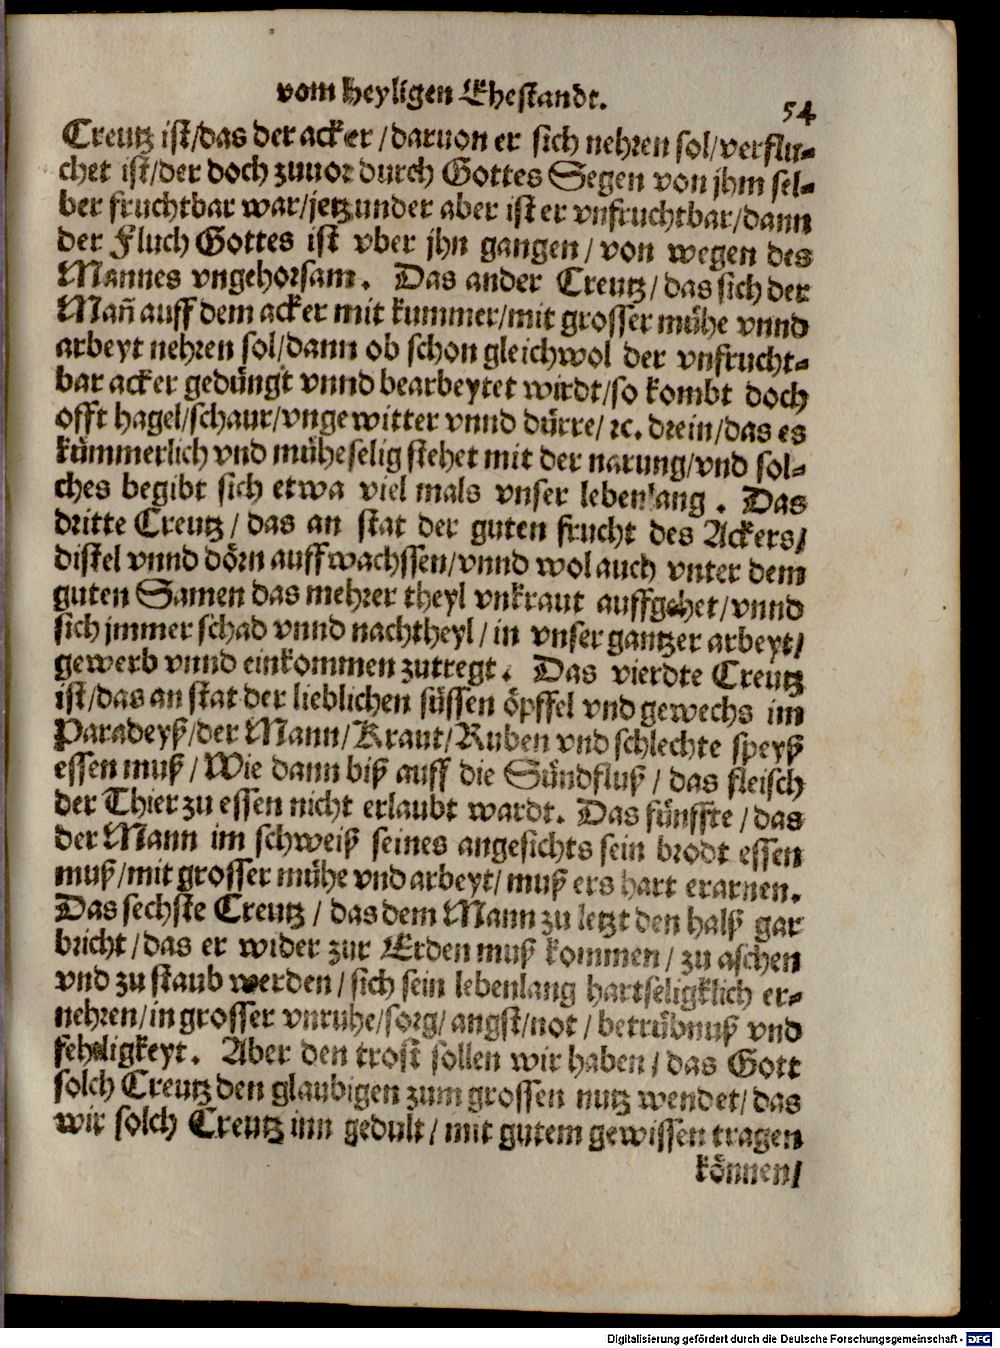 vom heyligen Ehestandt.
54
Creutz ist/das der acker/daruon er sich nehren sol/verflu-
chet ist/der doch zuuor durch Gottes Segen von jhm sel-
ber fruchtbar war/jetzunder aber ist er vnfruchtbar/dann
der Fluch Gottes ist vber jhn gangen/von wegen des
Mannes vngehorsam. Das ander Creutz/das sich der
Mañ auff dem acker mit kummer/mit grosser mühe vnnd
arbeyt nehren sol/dann ob schon gleichwol der vnfrucht-
bar acker gedüngt vnnd bearbeytet wirdt/so kombt doch
offt hagel/schaur/vngewitter vnnd dürre/ꝛc. drein/das es
kümmerlich vnd müheselig stehet mit der narung/vnd sol-
ches begibt sich etwa viel mals vnser lebenlang. Das
dritte Creutz/das an stat der guten frucht des Ackers/
distel vnnd dörn auffwachssen/vnnd wol auch vnter dem
guten Samen das mehrer theyl vnkraut auffgehet/vnnd
sich jmmer schad vnnd nachtheyl/in vnser gantzer arbeyt/
gewerb vnnd einkommen zutregt. Das vierdte Creutz
ist/das an stat der lieblichen süssen öpffel vnd gewechs im
Paradeyß/der Mann/Kraut/Ruben vnd schlechte speyß
essen muß/Wie dann biß auff die Sündfluß/das fleisch
der Thier zu essen nicht erlaubt wardt. Das fünffte/das
der Mann im schweiß seines angesichts sein brodt essen
muß/mit grosser mühe vnd arbeyt/muß ers hart erarnen.
Das sechste Creutz/das dem Mann zu letzt den halß gar
bricht/das er wider zur Erden muß kommen/zu aschen
vnd zu staub werden/sich sein lebenlang hartseligklich er-
nehren/in grosser vnruhe/sorg/angst/not/betrübnuß vnd
fehrligkeyt. Aber den trost sollen wir haben/das Gott
solch Creutz den glaubigen zum grossen nutz wendet/das
wir solch Creutz inn gedult/mit gutem gewissen tragen
können/
Digitalisierung gefördert durch die Deutsche Forschungsgemeinschaft - DFG